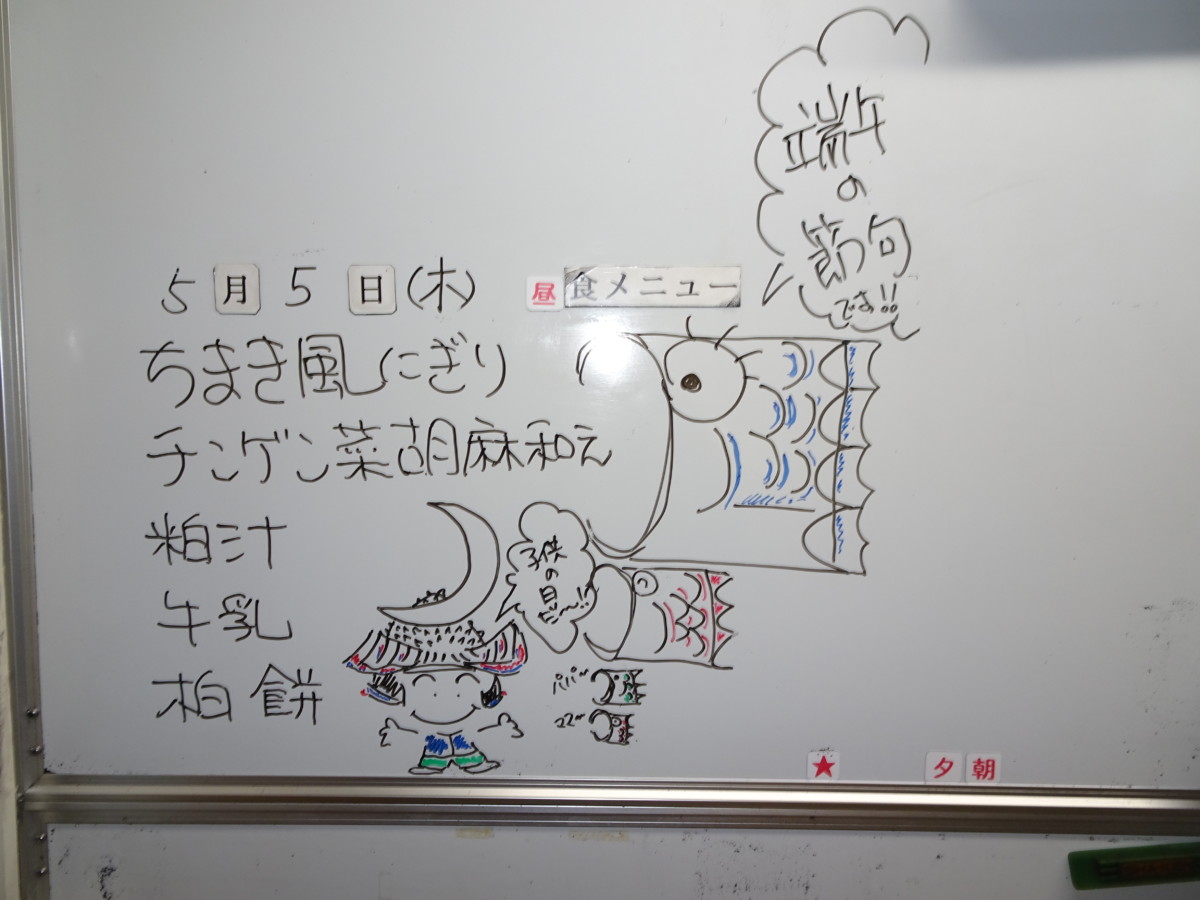 端午
の
節句
です!!
5月5日(木)
昼食メニュー
ちまき風にぎり
チンゲン菜胡麻和え
粕汁
牛乳
柏餅
子供
の
日
だー!!
パパー
ママー
★ 夕 朝